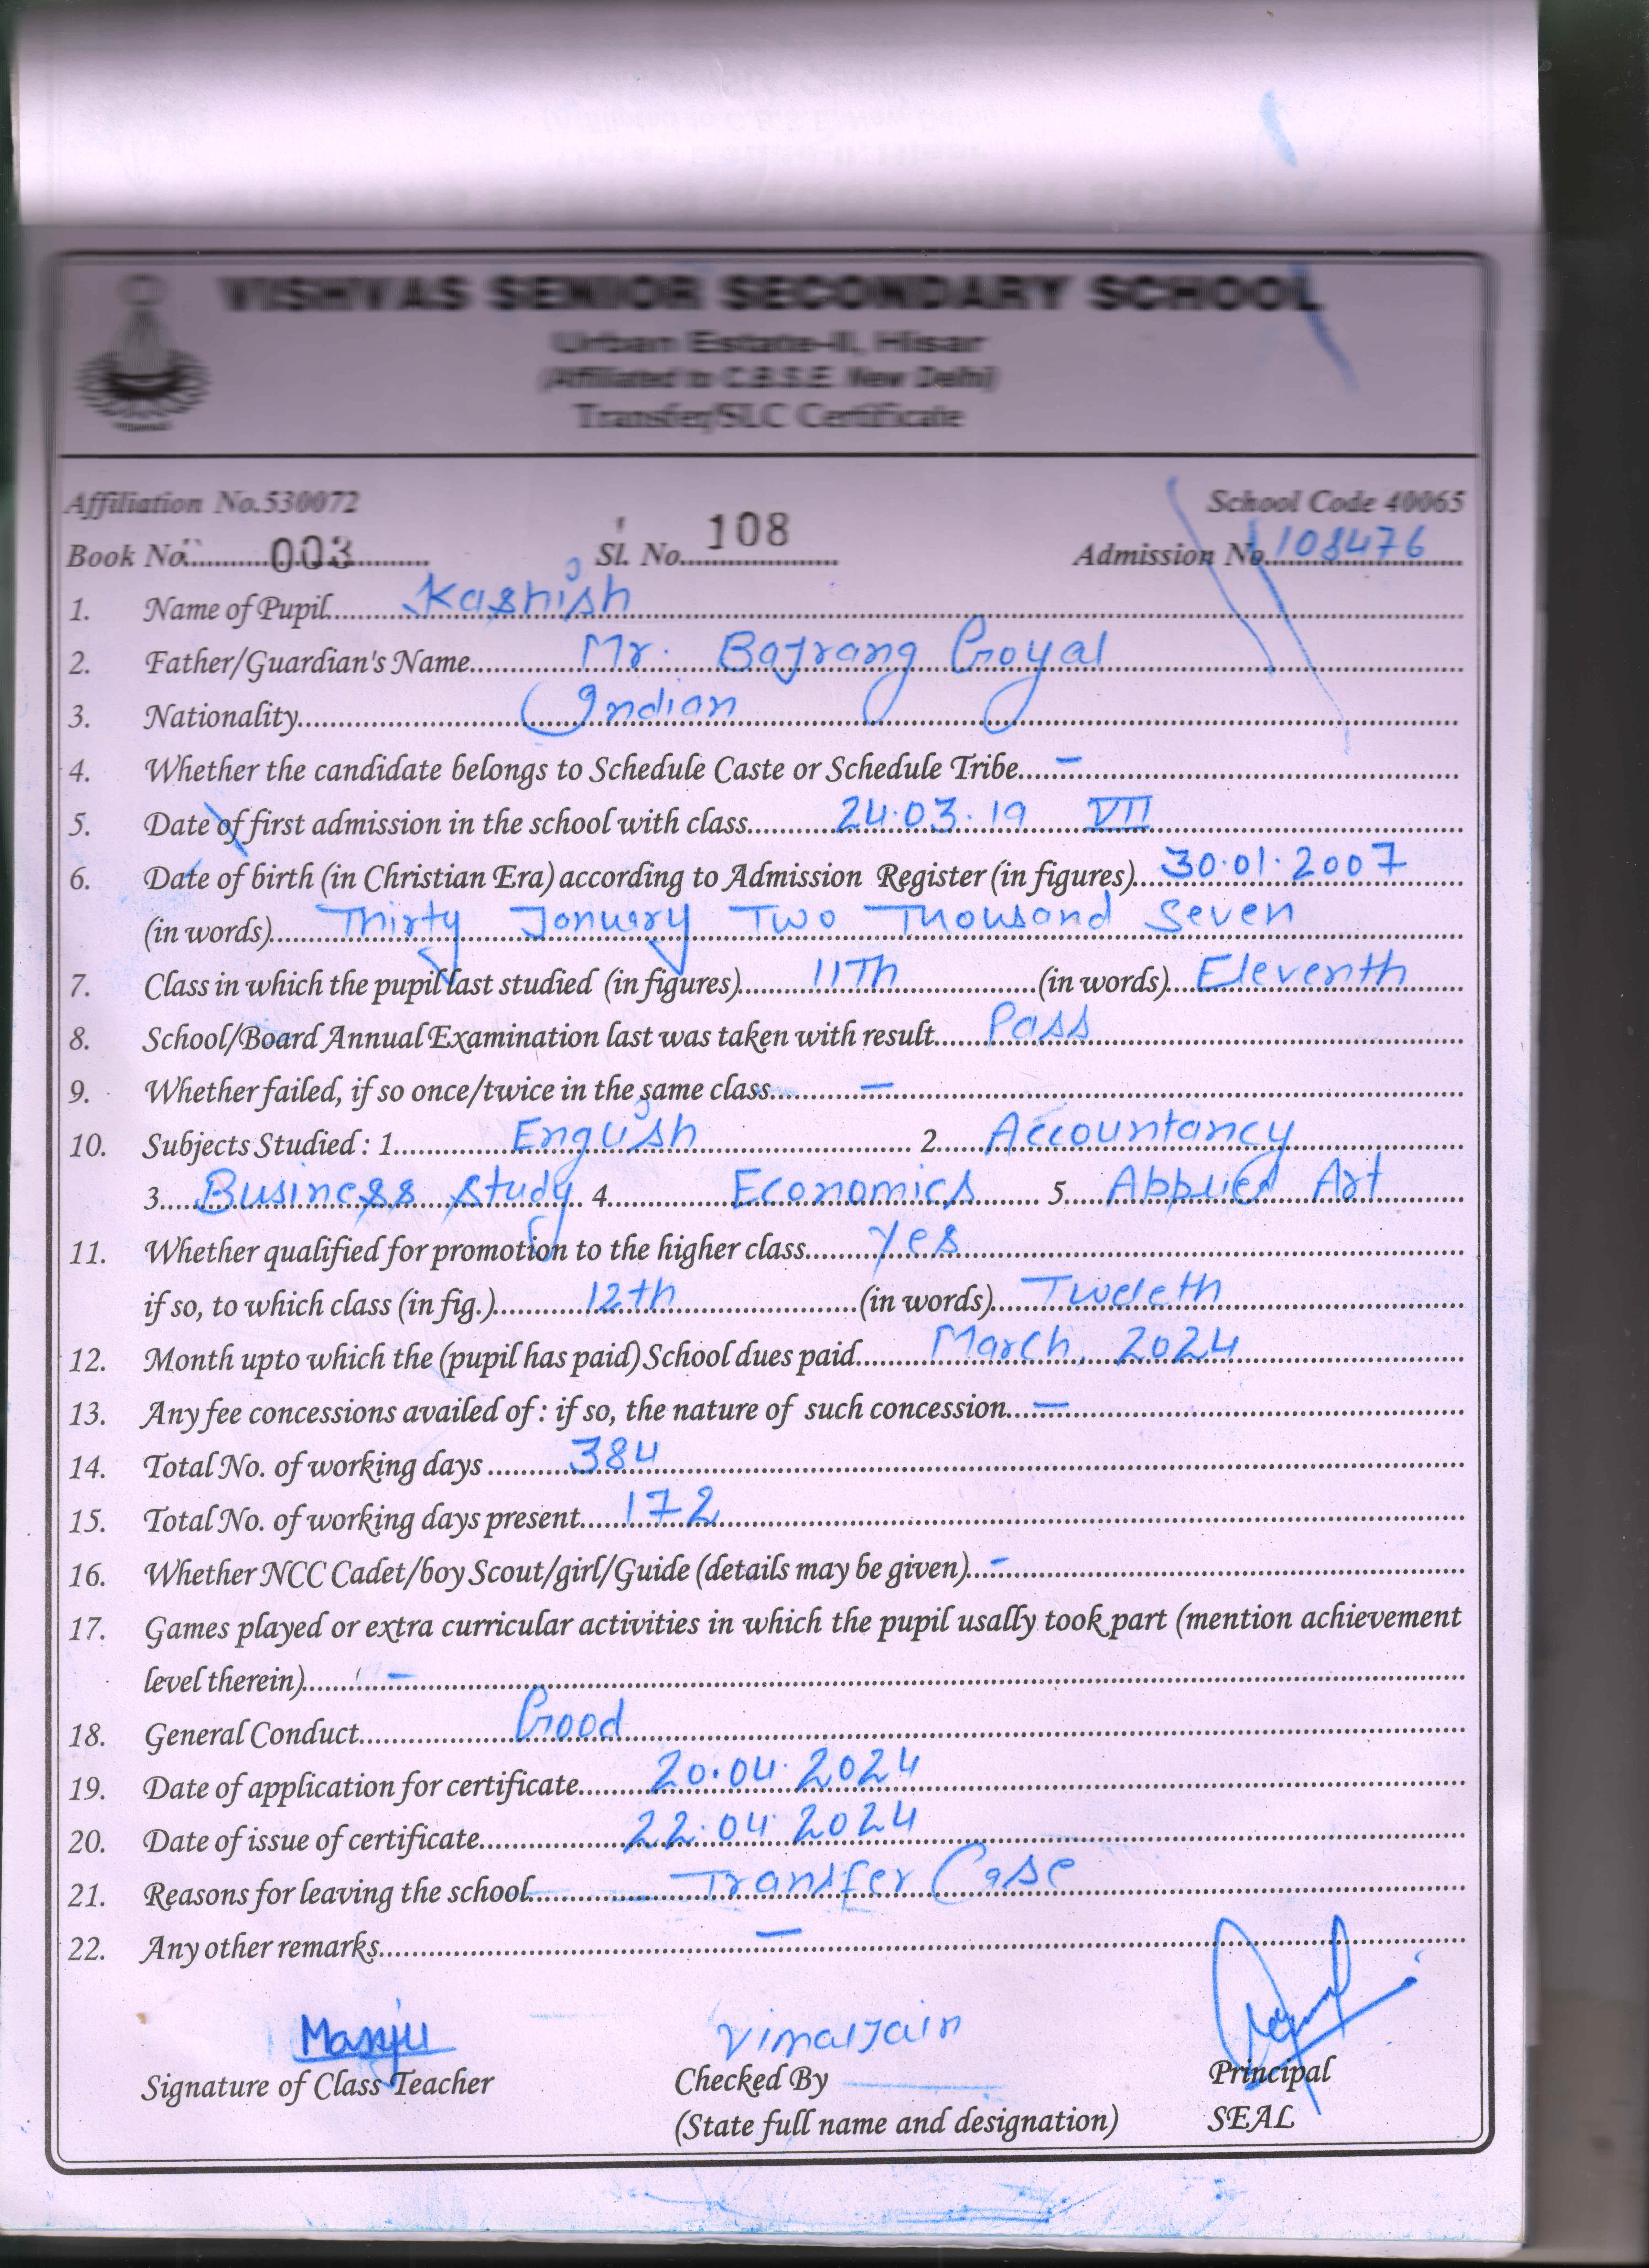 VISHVAS SENIOR SECONDARY SCHOOL
Urban Estate-II, Hisar
(Affiliated to C.B.S.E. New Delhi)
Transfer/SLC Certificate
Affiliation No.530072 School Code 40065
Book No. 003 Sl. No. 108 Admission No. 108476
1. Name of Pupil Kashish
2. Father/Guardian's Name Mr. Bajrang Goyal
3. Nationality Indian
4. Whether the candidate belongs to Schedule Caste or Schedule Tribe –
5. Date of first admission in the school with class 24.03.19 VII
6. Date of birth (in Christian Era) according to Admission Register (in figures) 30.01.2007
(in words) Thirty January Two Thousand Seven
7. Class in which the pupil last studied (in figures) 11Th (in words) Eleventh
8. School/Board Annual Examination last was taken with result Pass
9. Whether failed, if so once/twice in the same class –
10. Subjects Studied : 1. English 2. Accountancy
3. Business Study 4. Economics 5. Applied Art
11. Whether qualified for promotion to the higher class yes
if so, to which class (in fig.) 12th (in words)
12. Month upto which the (pupil has paid) School dues paid March, 2024
13. Any fee concessions availed of : if so, the nature of such concession –
14. Total No. of working days 384
15. Total No. of working days present 172
16. Whether NCC Cadet/boy Scout/girl/Guide (details may be given) –
17. Games played or extra curricular activities in which the pupil usally took part (mention achievement
level therein) –
18. General Conduct Good
19. Date of application for certificate 20.04.2024
20. Date of issue of certificate 22.04.2024
21. Reasons for leaving the school Transfer Case
22. Any other remarks –
Manju Vimal Jain
Signature of Class Teacher Checked By Principal
(State full name and designation) SEAL